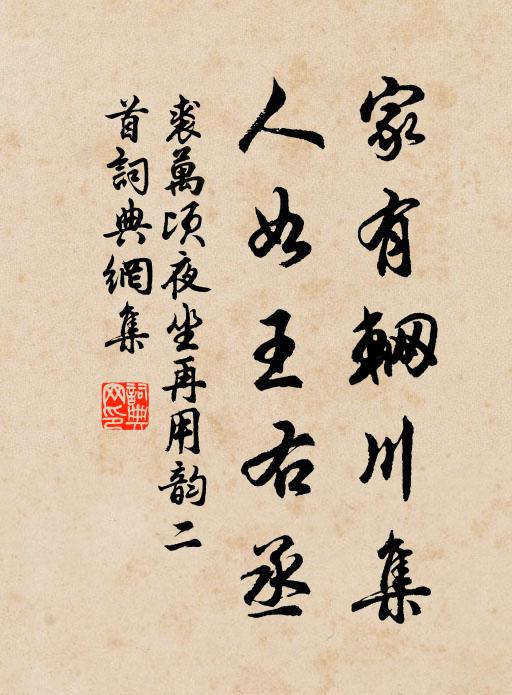 家有輞川集
人如王右丞
裘萬頃夜坐再用韵二
首詞典網集
詞典
网印